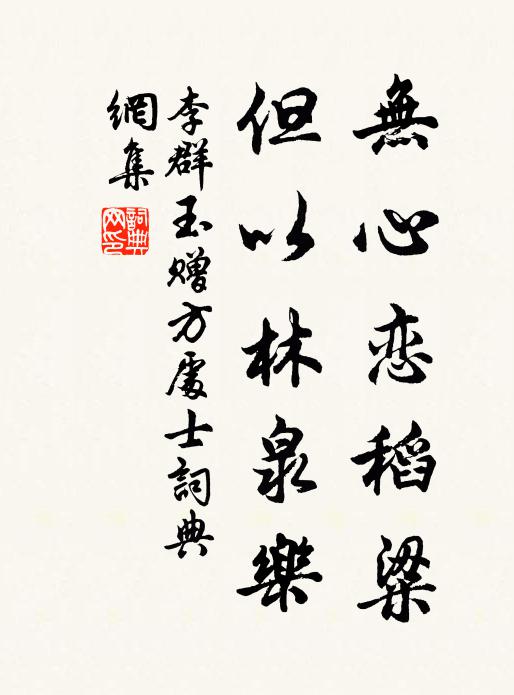 無心恋稻粱
但以林泉樂
李群玉贈方處士詞典
網集
詞典网印